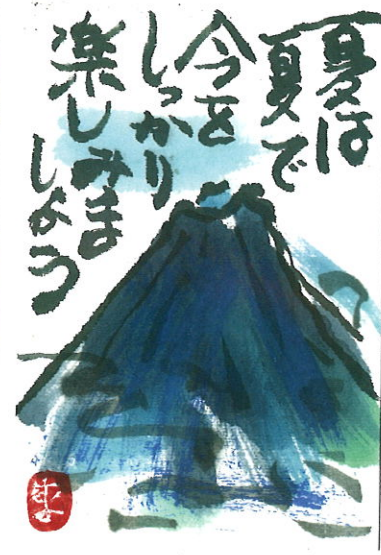 夏は
夏で
今を
しっかり
楽しみま
しょう